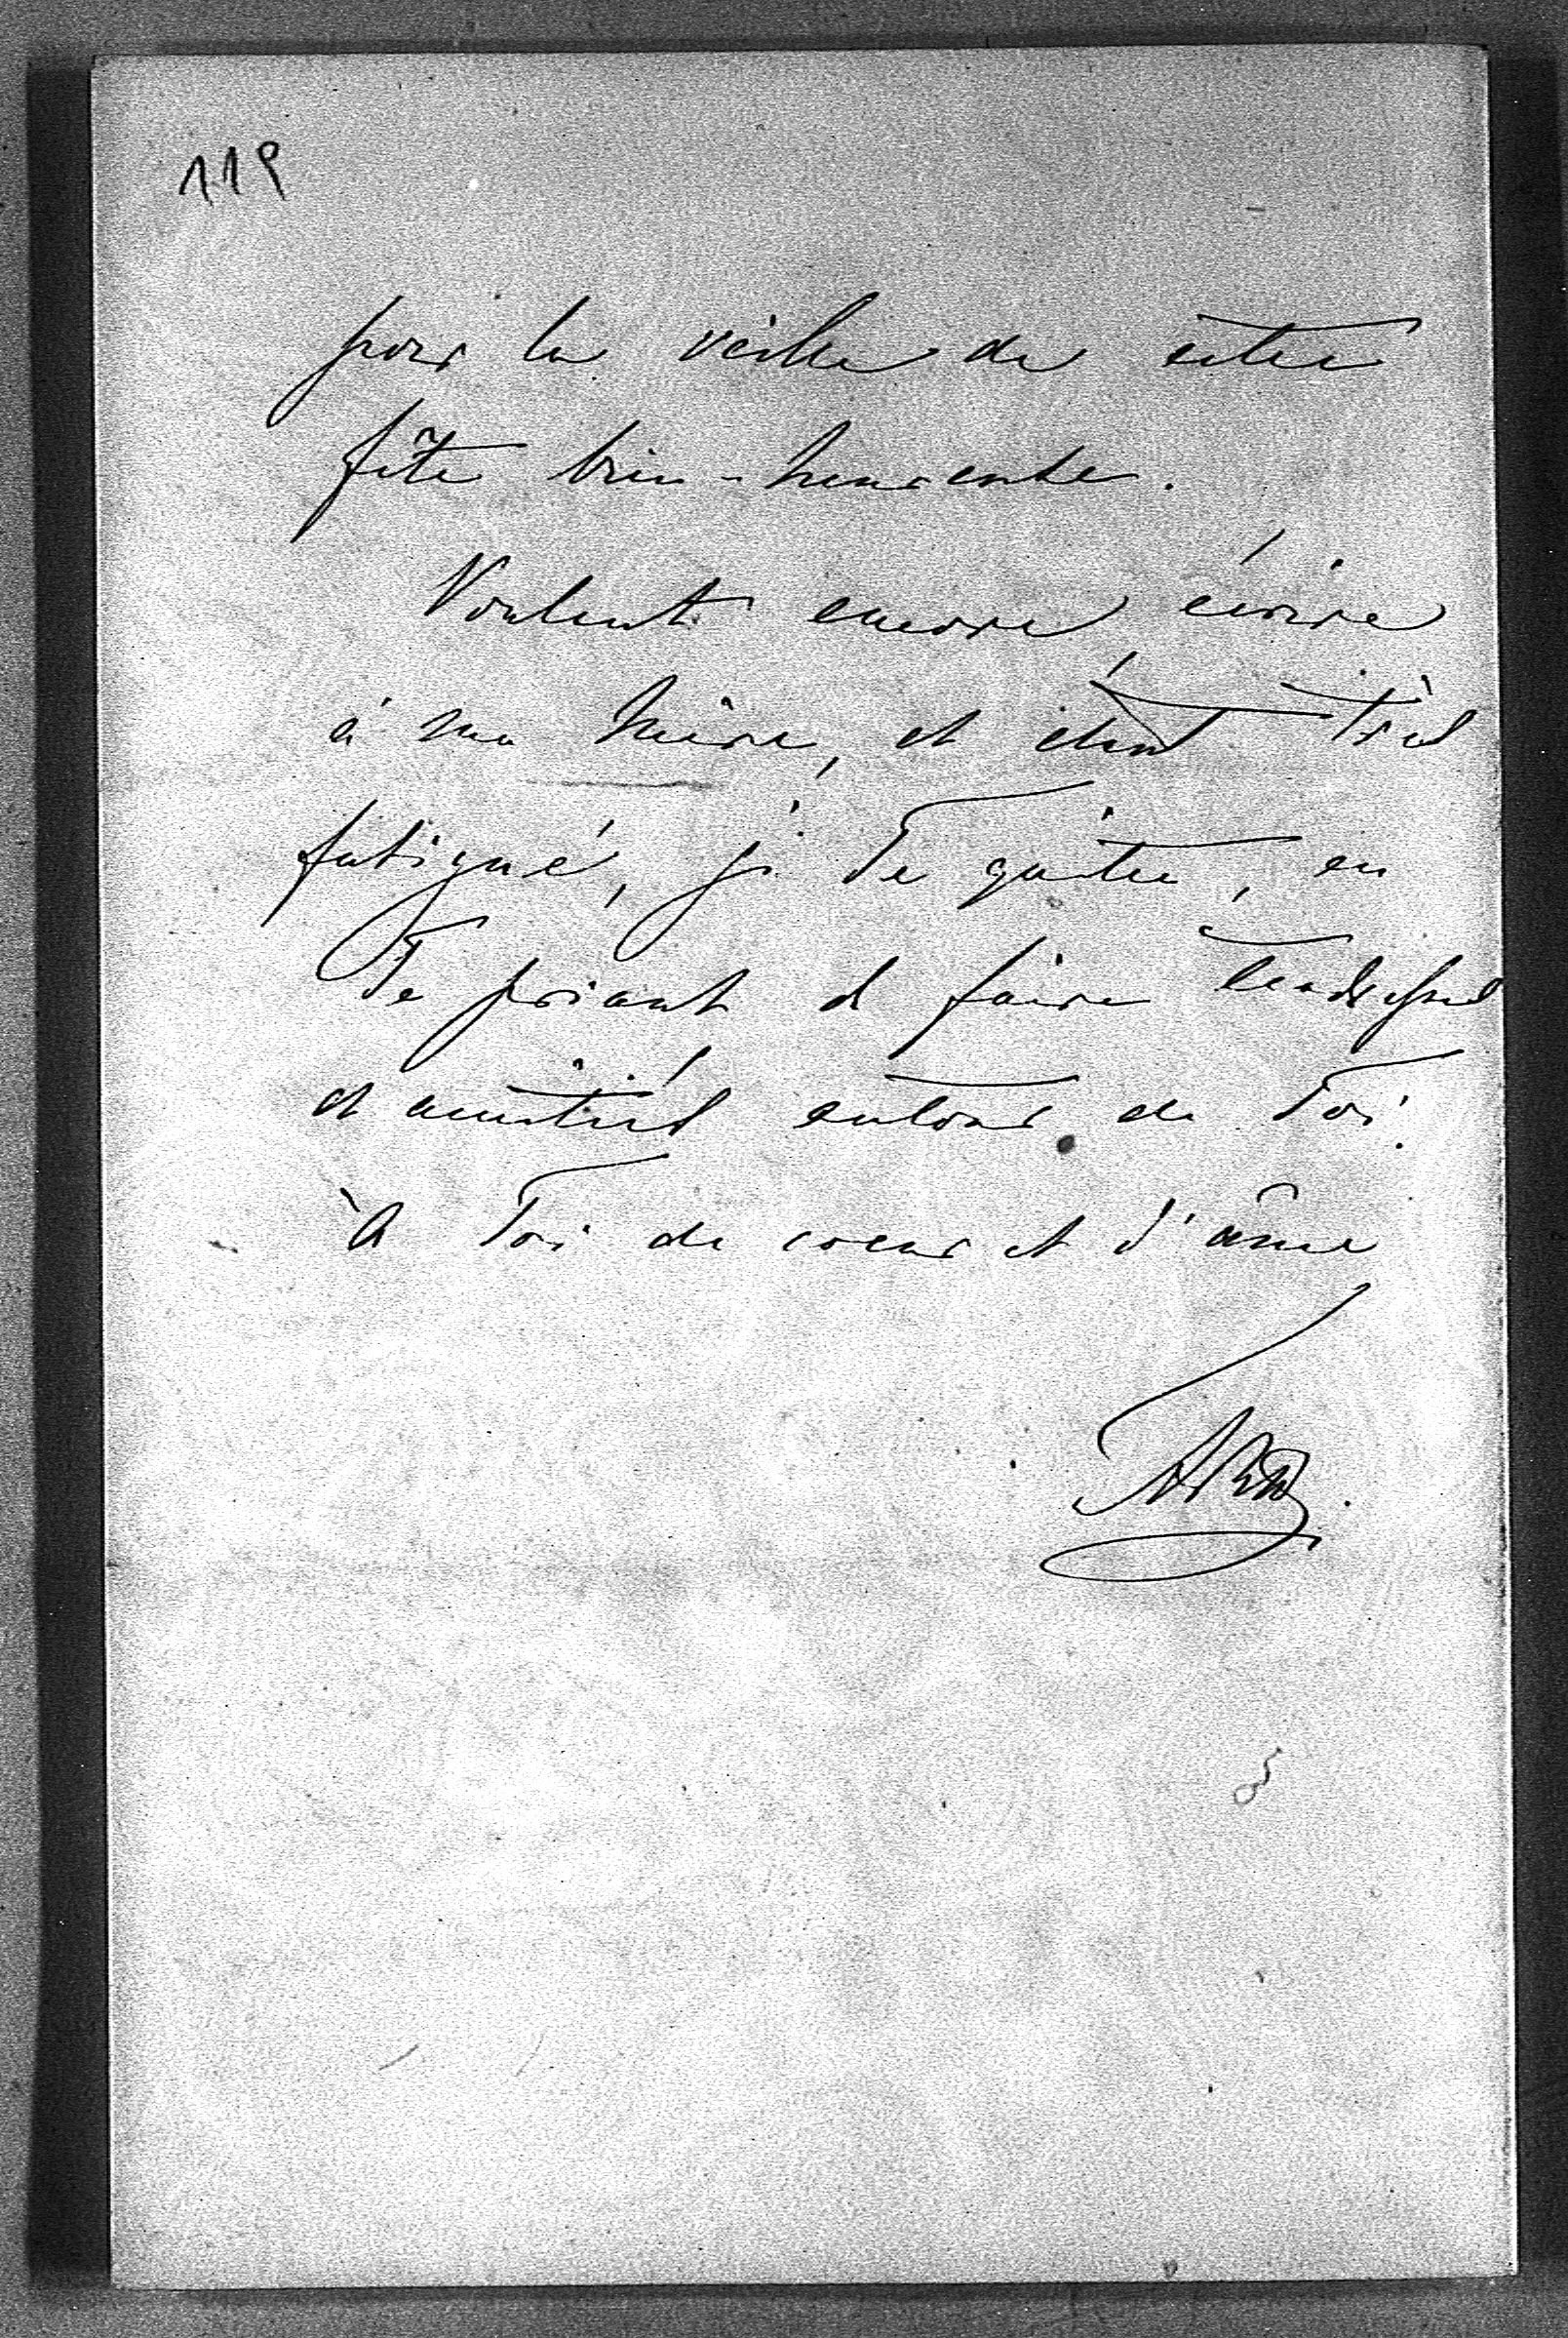 119
pour la veille de cette
fête bien-heureuse.
Voulant encore écrire
à ma Mère, et étant très
fatigué, je Te quitte, en
Te priant de faire tendresses
et amitiés autour de Toi.
À Toi de coeur et d'âme